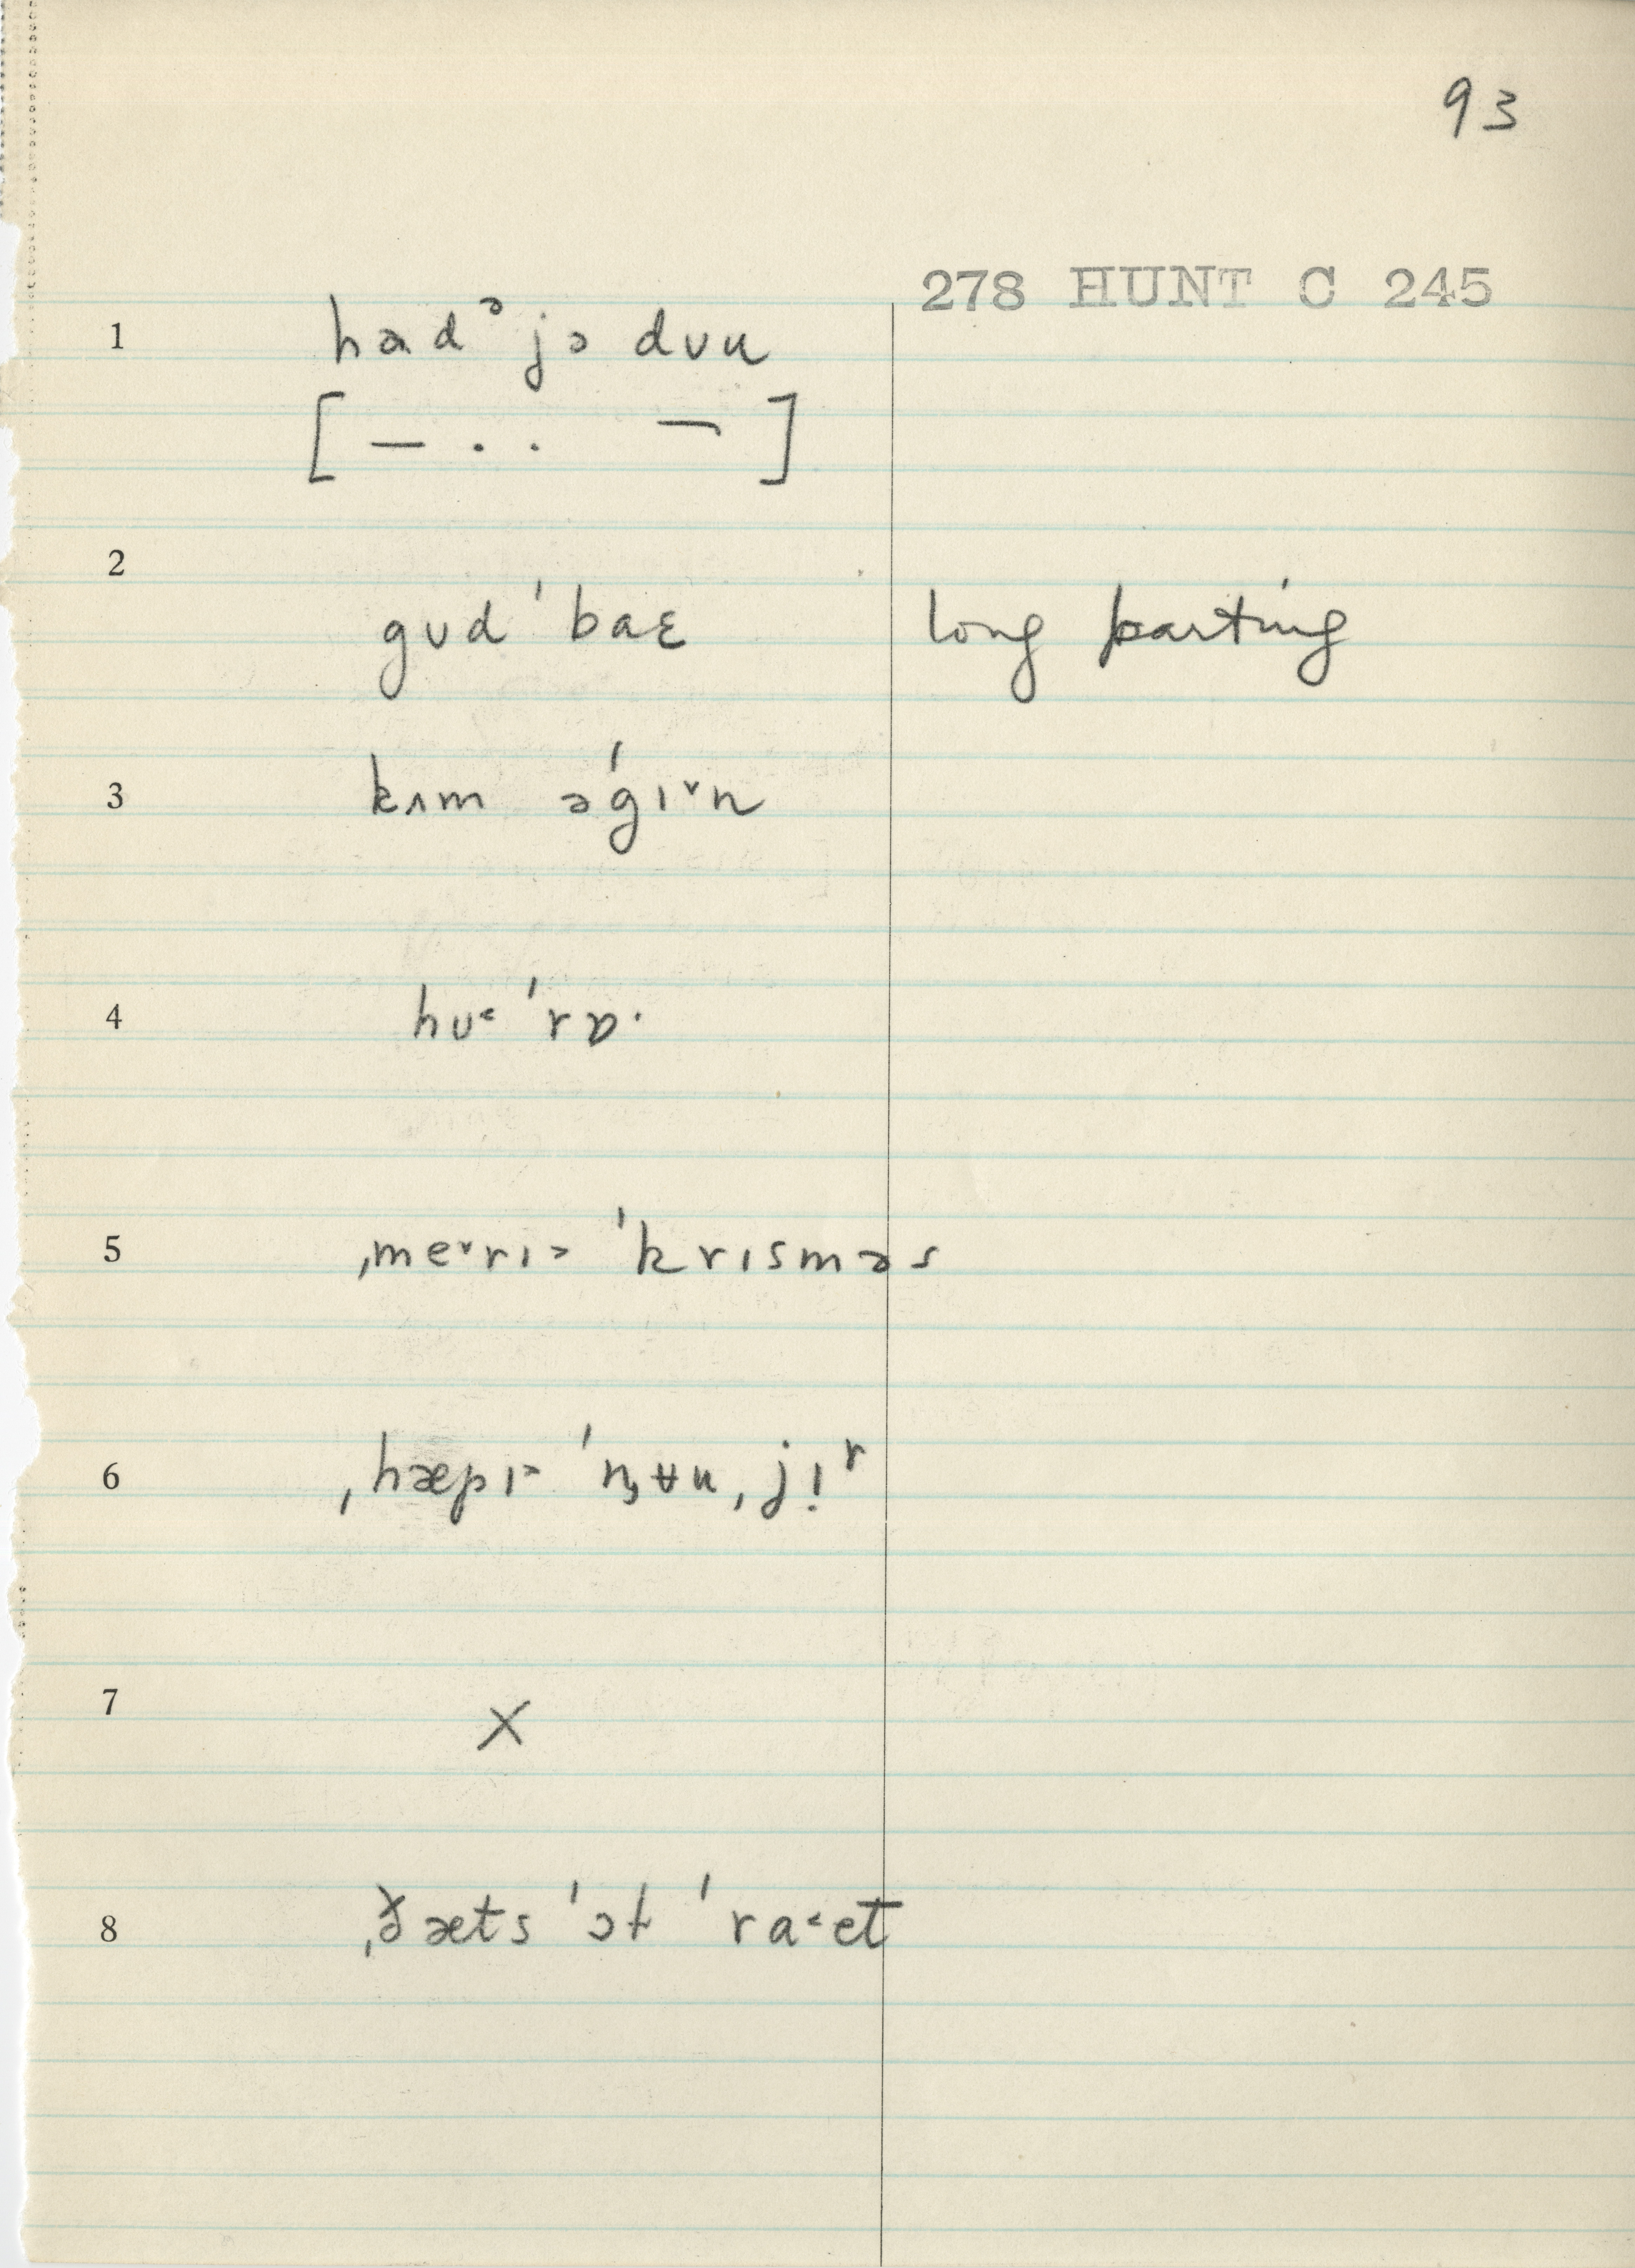 93
278 HUNT C 245
1 had ᵊ jə dʊu
[ — . . — ]
2
gʊd ˈbaɛ long parting
3 kʌm əˈgɪ˅n
4 hʊ˂ ˈrɒ·
5 ˌme˅rɪ˃ ˈkrɪsməs
6 ˌhæpɪ˃ ˈnʒʉu ˌjɪ̣ʳ
7 X
8 ˌðæts ˈɔt ˈra˂et